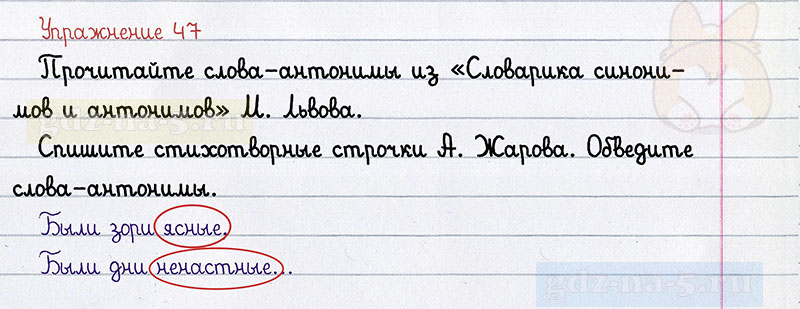 Упражнение 47
Прочитайте слова-антонимы из «Словарика синони-
мов и антонимов» М. Львова.
gdz-na-5.ru
Спишите стихотворные строчки А. Жарова. Обведите
слова-антонимы.
Были зори ясные.
Были дни ненастные...
gdz-na-5.ru